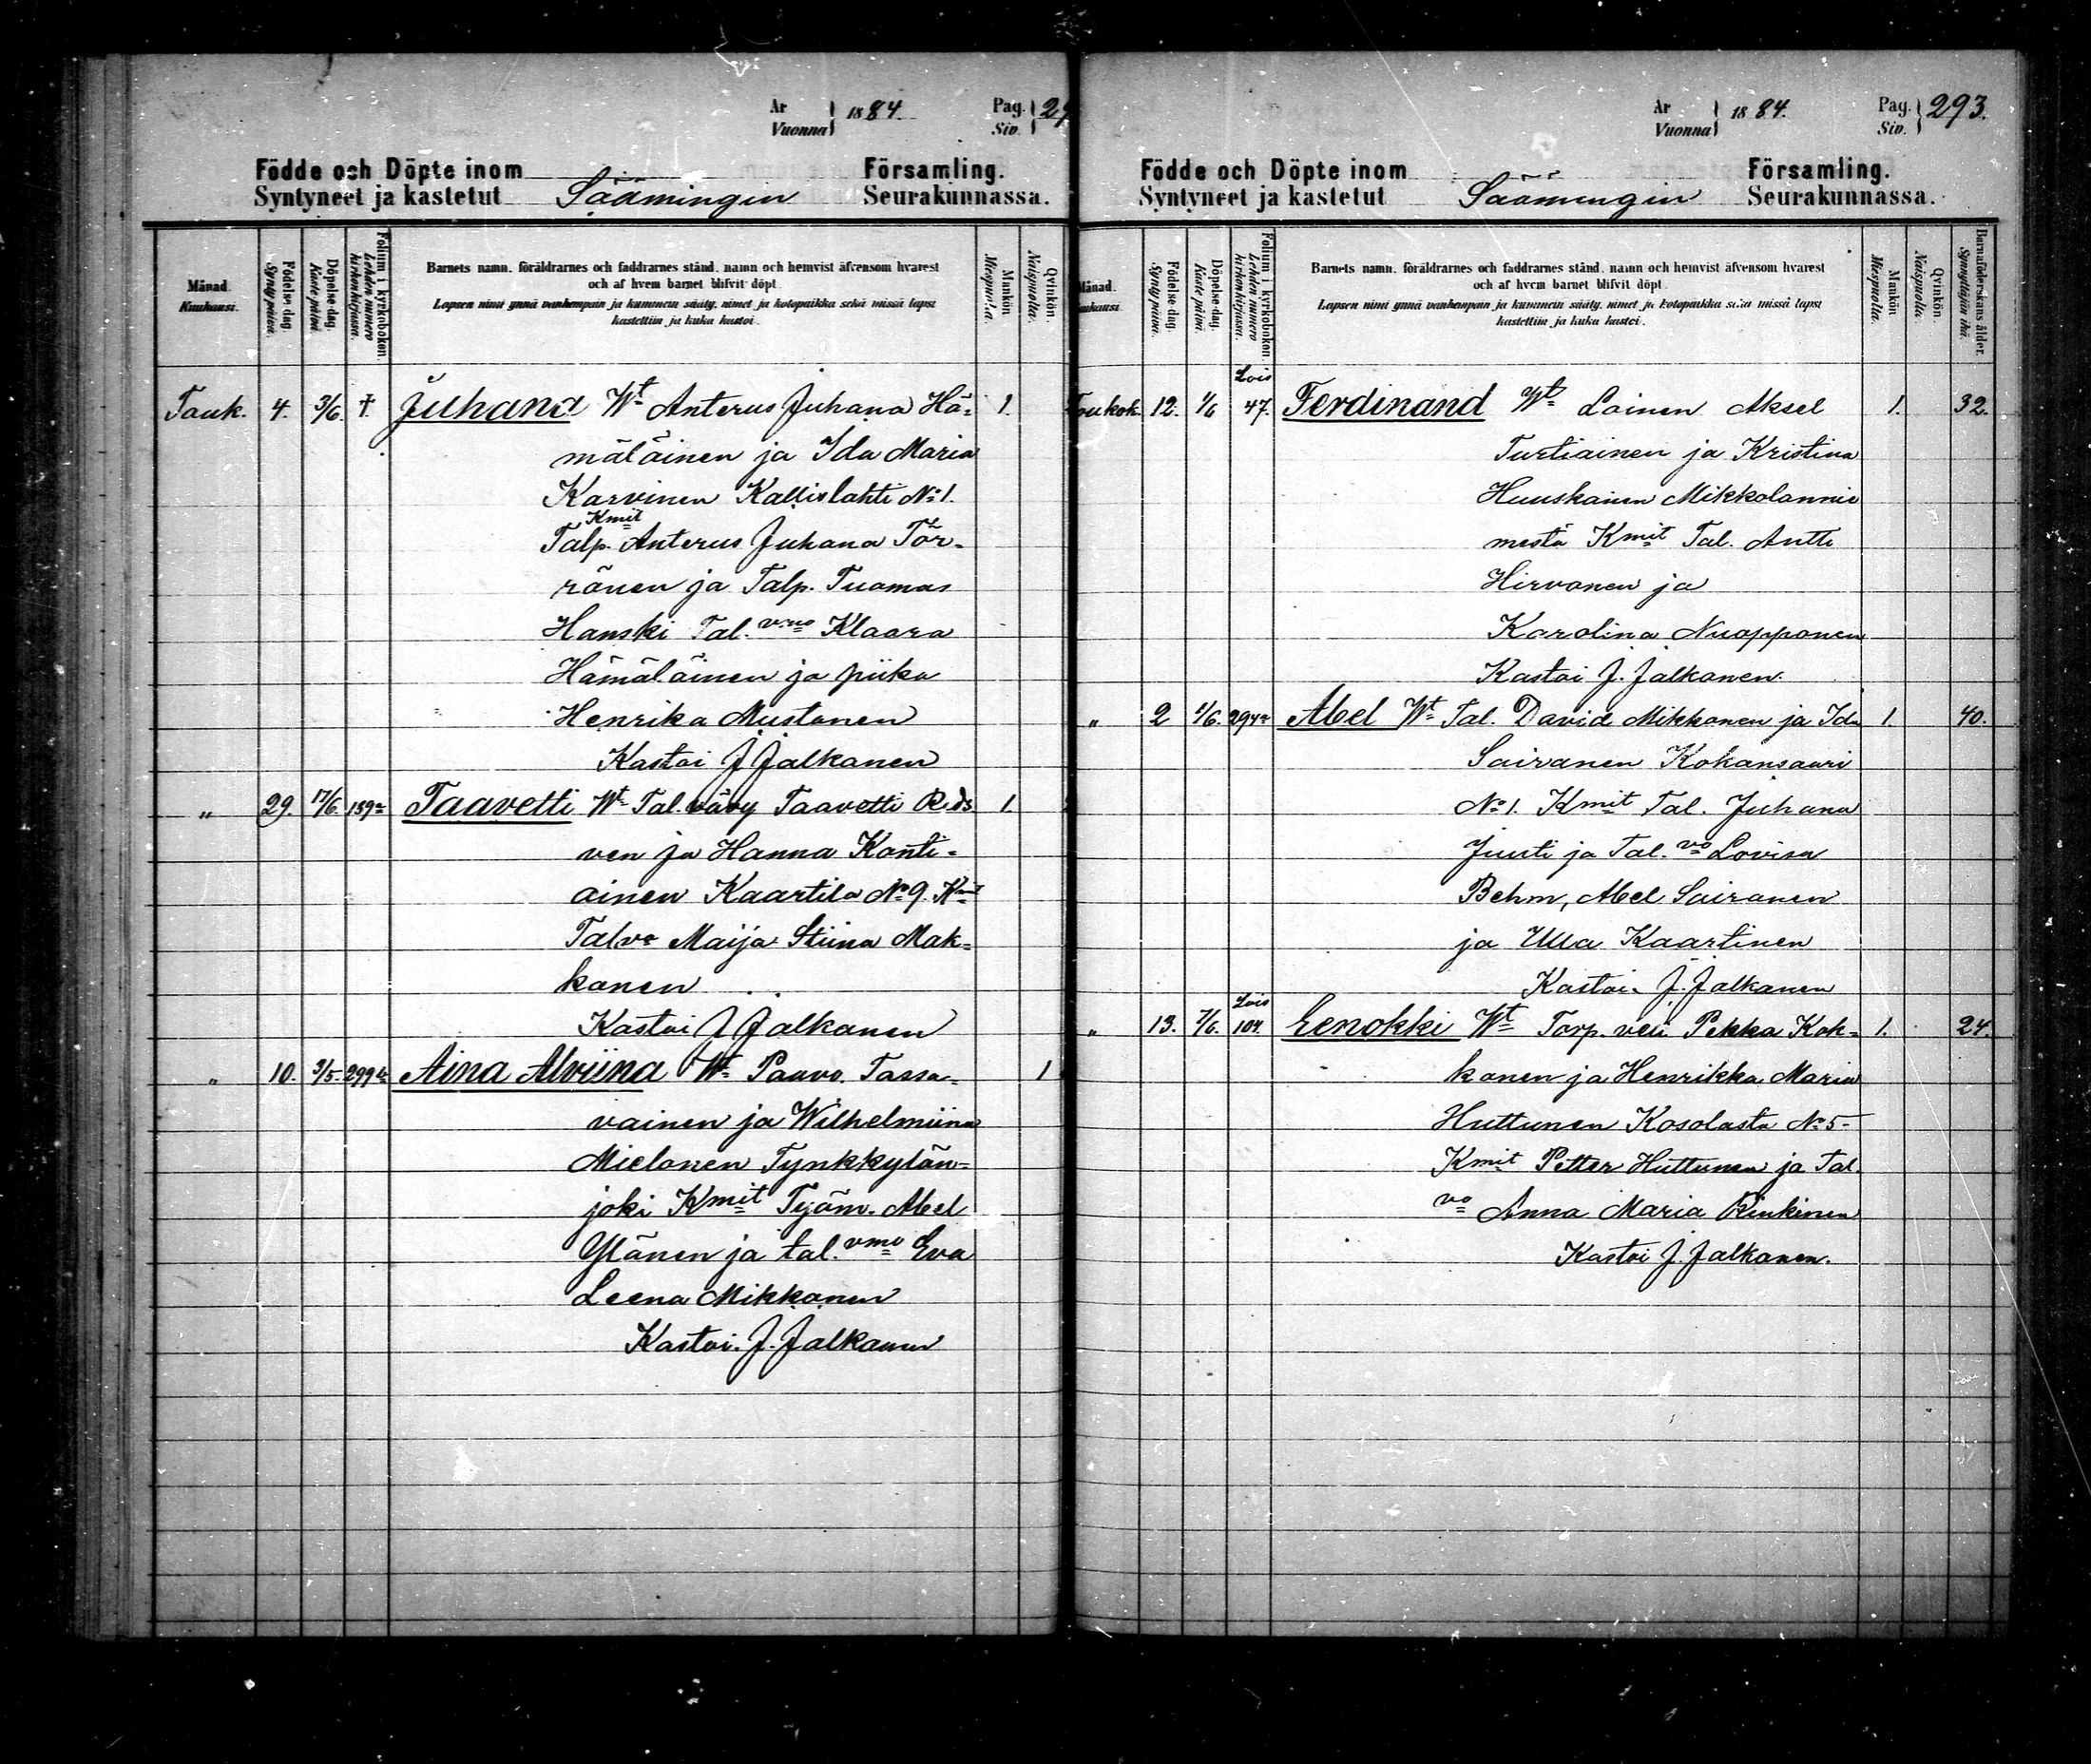 År
Vuonna } 1884.
Pag.
Siv. } 29
Födde och Döpte inom Församling.
Syntyneet ja kastetut Säämingin Seurakunnassa.
Månad. Kuukausi.
Födelse dag. Synty päivä.
Döpelse-dag. Kaste päivä.
Folium i kyrkoboken. Lehden numero kirkonkirjassa.
Barnets namn, föräldrarnes och faddrarnes stånd, namn och hemvist äfvensom hvarest
och af hvem barnet blifvit döpt.
Lapsen nimi ynnä vanhempain ja kummein sääty, nimet ja kotopaikka sekä missä lapsi
kastettiin ja kuka kastoi.
Mankön. Miespuolia.
Qvinkön. Naispuolia.
Touk. 4. 3/6. †. Juhana Wt Anterus Juhana Hä- 1.
mäläinen ja Ida Maria
Karvinen Kallislahti No 1.
Kmit
Talp. Anterus Juhana Tör-
rönen ja Talp. Tuomas
Hanski Tal. vmo Klaara
Hämäläinen ja piika
Henrika Mustonen
Kastoi J Jalkanen
" 29. 17/6. 139a Taavetti Wt Tal. vävy Taavetti 1.
ven ja Hanna Konti-
ainen Kaartila No 9. Kmit
Talvo Maija Stiina Mak-
konen
Kastoi J Jalkanen
" 10. 3/5. 299 Aina Alviina Wt Paavo Tassa- 1
vainen ja Wilhelmiina
Mielonen Tynkkylän-
joki Kmit Työm. Abel
Ylänen ja tal. vmo Eva
Leena Mikkonen
Kastoi. J. Jalkanen
År
Vuonna } 1884.
Pag.
Siv. } 293.
Födde och Döpte inom Församling.
Syntyneet ja kastetut Säämingin Seurakunnassa.
Månad. Kuukausi.
Födelse dag. Synty päivä.
Döpelse-dag. Kaste päivä.
Folium i kyrkoboken. Lehden numero kirkonkirjassa.
Barnets namn, föräldrarnes och faddrarnes stånd, namn och hemvist äfvensom hvarest
och af hvem barnet blifvit döpt.
Lapsen nimi ynnä vanhempain ja kummein sääty, nimet ja kotopaikka sekä missä lapsi
kastettiin ja kuka kastoi.
Mankön Miespuolia.
Qvinkön. Naispuolia
Barnaföderskans ålder. Synnyttäjän ikä.
Lois
Toukok. 12. 1/6 47. Ferdinand Wt Loinen Aksel 1. 32.
Turtiainen ja Kristina
Huuskonen Mikkolannie
mestä Kmit Tal. Antti
Hirvonen ja
Karolina Nuopponen
Kastoi J. Jalkanen.
" 2 1/6. 294a Abel Wt Tal. David Mikkonen ja Ida 1. 40.
Sairanen Kokonsaari
No 1. Kmit Tal. Juhana
Juuti ja Tal. vo Lovisa
Behm, Abel Sairanen
ja Ulla Kaartinen
Kastoi. J. Jalkanen
Lois
" 13. 7/6. 104. Eenokki Wt Torp. veli Pekka Kok- 1. 24.
konen ja Henrikka Maria
Huttunen Kosolasta No 5-
Kmit Petter Huttunen ja Tal.
vo Anna Maria Rinkinen
Kastoi J. Jalkanen.